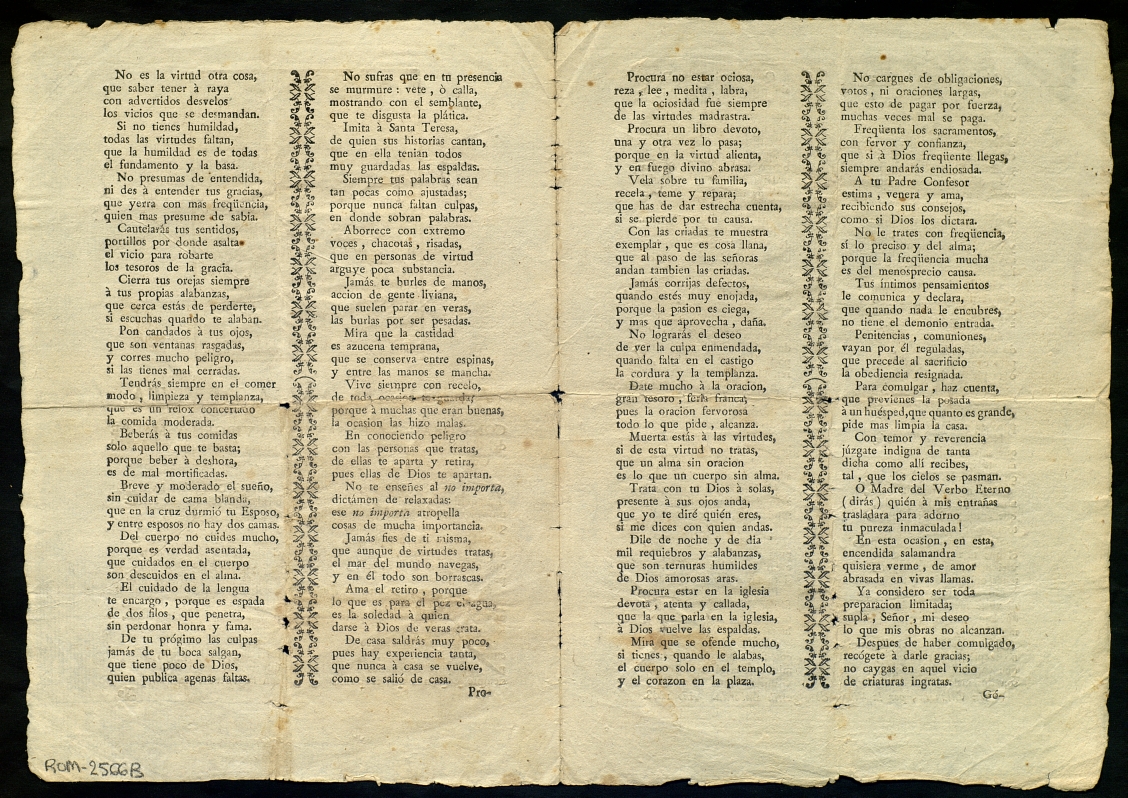 No es la virtud otra cosa,
que saber tener à raya
con advertidos desvelos
los vicios que se desmandan.
Si no tienes humildad,
todas las virtudes faltan,
que la humildad es de todas
el fundamento y la basa.
No presumas de entendida,
ni des à entender tus gracias,
que yerra con mas freqüencia,
quien mas presume de sabia.
Cautelarás tus sentidos,
portillos por donde asalta
el vicio para robarte
los tesoros de la gracia.
Cierra tus orejas siempre
à tus propias alabanzas,
que cerca estás de perderte,
si escuchas quando te alaban.
Pon candados à tus ojos,
que son ventanas rasgadas,
y corres mucho peligro,
si las tienes mal cerradas.
Tendrás siempre en el comer
modo, limpieza y templanza,
que es un relox concertado
la comida moderada.
Beberás à tus comidas
solo aquello que te basta;
porque beber à deshora,
es de mal mortificadas.
Breve y moderado el sueño,
sin cuidar de cama blanda,
que en la cruz durmió tu Esposo,
y entre esposos no hay dos camas.
Del cuerpo no cuides mucho,
porque es verdad asentada,
que cuidados en el cuerpo
son descuidos en el alma.
El cuidado de la lengua
te encargo, porque es espada
de dos filos, que penetra,
sin perdonar honra y fama.
De tu prógimo las culpas
jamás de tu boca salgan,
que tiene poco de Dios,
quien publica agenas faltas.
No sufras que en tu presencia
se murmure: vete, ò calla,
mostrando con el semblante,
que te disgusta la plática.
Imita à Santa Teresa,
de quien sus historias cantan,
que en ella tenian todos
muy guardadas las espaldas.
Siempre tus palabras sean
tan pocas como ajustadas;
porque nunca faltan culpas,
en donde sobran palabras.
Aborrece con extremo
voces, chacotas, risadas,
que en personas de virtud
arguye poca substancia.
Jamás te burles de manos,
accion de gente liviana,
que suelen parar en veras,
las burlas por ser pesadas.
Mira que la castidad
es azucena temprana,
que se conserva entre espinas,
y entre las manos se mancha.
Vive siempre con recelo,
de toda ocasion te guarda;
porque à muchas que eran buenas,
la ocasion las hizo malas.
En conociendo peligro
con las personas que tratas,
de ellas te aparta y retira,
pues ellas de Dios te apartan.
No te enseñes al no importa,
dictámen de relaxadas:
ese no importa atropella
cosas de mucha importancia.
Jamás fies de ti misma,
que aunque de virtudes tratas,
el mar del mundo navegas,
y en él todo son borrascas.
Ama el retiro, porque
lo que es para el pez el agua,
es la soledad à quien
darse à Dios de veras trata.
De casa saldrás muy poco,
pues hay experiencia tanta,
que nunca à casa se vuelve,
como se salió de casa.
Pro-
Procura no estar ociosa,
reza, lee, medita, labra,
que la ociosidad fue siempre
de las virtudes madrastra.
Procura un libro devoto,
una y otra vez lo pasa;
porque en la virtud alienta,
y en fuego divino abrasa.
Vela sobre tu familia,
recela, teme y repara;
que has de dar estrecha cuenta,
si se pierde por tu causa.
Con las criadas te muestra
exemplar, que es cosa llana,
que al paso de las señoras
andan tambien las criadas.
Jamás corrijas defectos,
quando estés muy enojada,
porque la pasion es ciega,
y mas que aprovecha, daña.
No lograrás el deseo
de ver la culpa enmendada,
quando falta en el castigo
la cordura y la templanza.
Date mucho à la oracion,
gran tesoro, feria franca;
pues la oracion fervorosa
todo lo que pide, alcanza.
Muerta estás à las virtudes,
si de esta virtud no tratas,
que un alma sin oracion
es lo que un cuerpo sin alma.
Trata con tu Dios à solas,
presente à sus ojos anda,
que yo te diré quién eres,
si me dices con quien andas.
Dile de noche y de dia
mil requiebros y alabanzas,
que son ternuras humildes
de Dios amorosas aras.
Procura estar en la iglesia
devota, atenta y callada,
que la que parla en la iglesia,
à Dios vuelve las espaldas.
Mira que se ofende mucho,
si tienes, quando le alabas,
el cuerpo solo en el templo,
y el corazon en la plaza.
No cargues de obligaciones,
votos, ni oraciones largas,
que esto de pagar por fuerza,
muchas veces mal se paga.
Freqüenta los sacramentos,
con fervor y confianza,
que si à Dios freqüente llegas,
siempre andarás endiosada.
A tu Padre Confesor
estima, venera y ama,
recibiendo sus consejos,
como si Dios los dictara.
No le trates con freqüencia,
sí lo preciso y del alma;
porque la freqüencia mucha
es del menosprecio causa.
Tus íntimos pensamientos
le comunica y declara,
que quando nada le encubres,
no tiene el demonio entrada.
Penitencias, comuniones,
vayan por él reguladas,
que precede al sacrificio
la obediencia resignada.
Para comulgar, haz cuenta,
que previenes la posada
à un huésped, que quanto es grande,
pide mas limpia la casa.
Con temor y reverencia
júzgate indigna de tanta
dicha como allí recibes,
tal, que los cielos se pasman.
O Madre del Verbo Eterno
(dirás) quién à mis entrañas
trasladara para adorno
tu pureza inmaculada!
En esta ocasion, en esta,
encendida salamandra
quisiera verme, de amor
abrasada en vivas llamas.
Ya considero ser toda
preparacion limitada;
supla, Señor, mi deseo
lo que mis obras no alcanzan.
Despues de haber comulgado,
recógete à darle gracias;
no caygas en aquel vicio
de criaturas ingratas.
Gó-
ROM-2566B